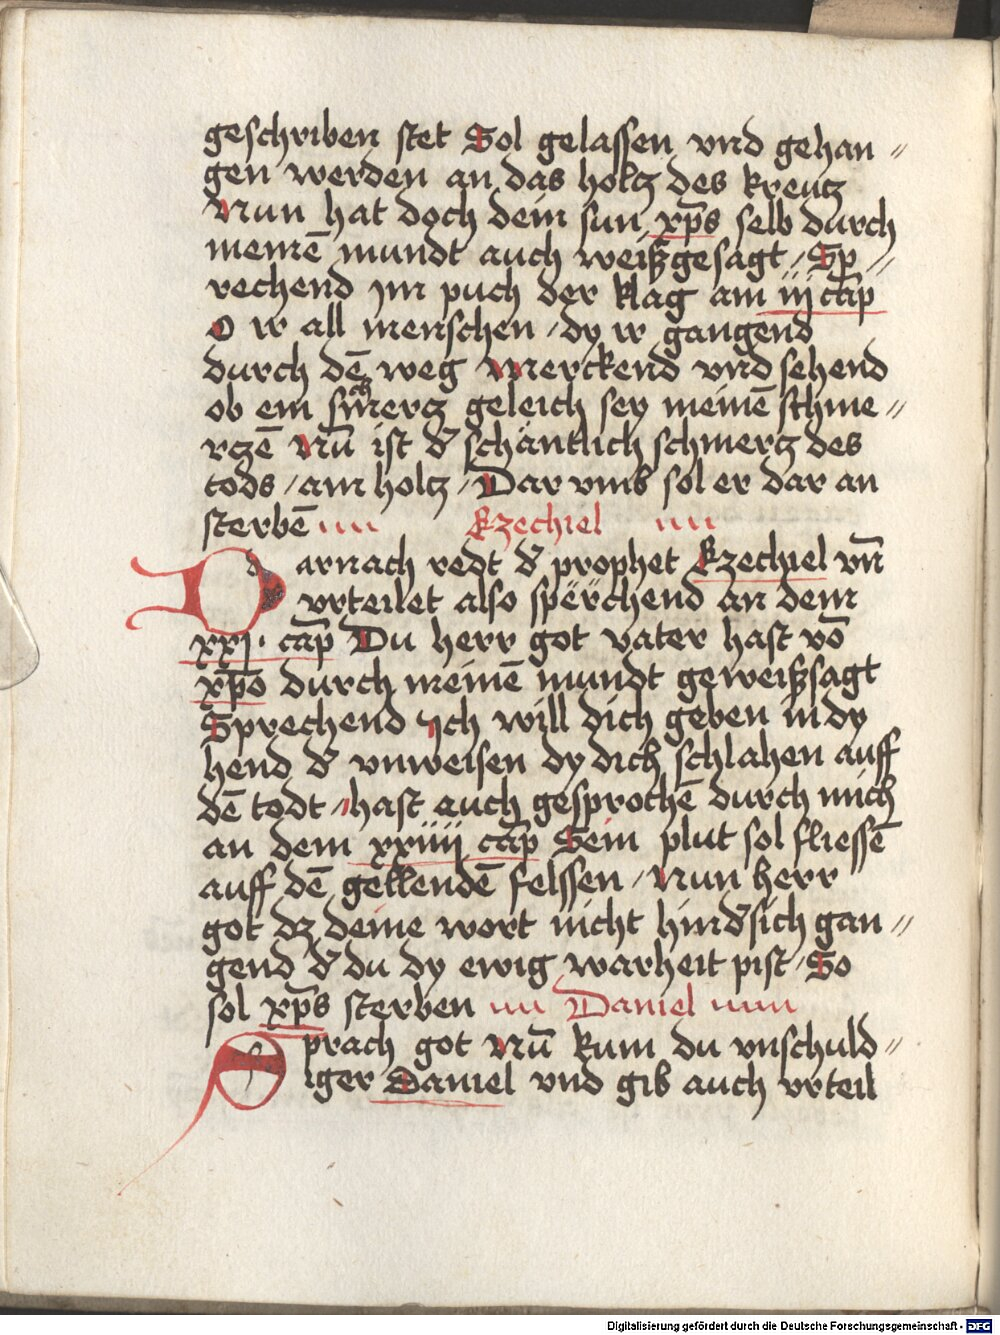 geschriben stet Sol gelassen vnd gehan〃
gen werden an das holtz des kreutz
Nun hat doch dein sun xp̄s selb durch
meinē mundt auch weißgesagt / Sp〃
rechend ym puch der klag am iij cap̄
O ir all menschen / dy ir gangend
durch dē weg Merckend vnd sehend
ob ein smerchtz geleich sey meinē schme〃
rczē Nū ist d̄ schantlich schmertz des
tods / am holtz / Dar vmb sol er dar an
sterbē Ezechiel
Darnach redt d̄ prophet Ezechiel vn̄
vrteilet also sperchend an dem
xxj · cap̄ Du herr got vater hast vō
xp̄o durch meinē mundt geweißsagt
Sprechend Ich will dich geben in dy
hend d̄ vnweisen dy dich schlahen auff
dē todt / hast auch gesprochē durch mich
an dem xxiiij cap̄ Sein plut sol fliessē
auff dē gellendē felssen / Nun herr
got dz deine wort nicht hind̄sich gan〃
gend d̄ du dy ewig warheit pist / So
sol xp̄s sterben Daniel
Sprach got Nū kum du vnschuld〃
iger Daniel vnd gib auch vrteil
Digitalisierung gefördert durch die Deutsche Forschungsgemeinschaft - DFG